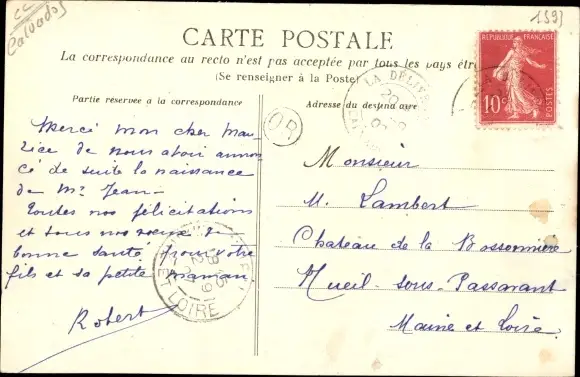 CC
Calvados
1593
CARTE POSTALE
La correspondance au recto n'est pas acceptée par tous les pays étr
(Se renseigner à la Poste)
Partie réservée à la correspondance
Adresse du destinataire
REPUBLIQUE FRANÇAISE
10c
POSTES
LA DÉLIV
OR
Merci mon cher Mau-
rice de nous avoir annon-
cé de suite la naissance
de Mr Jean -
Toutes nos félicitations
et tous nos voeux de
bonne santé pour votre
fils et sa petite maman.
Robert
ET LOIRE
Monsieur
M. Lambert
Chateau de la Bossonnière
Nueil-sous-Passavant
Maine et Loire